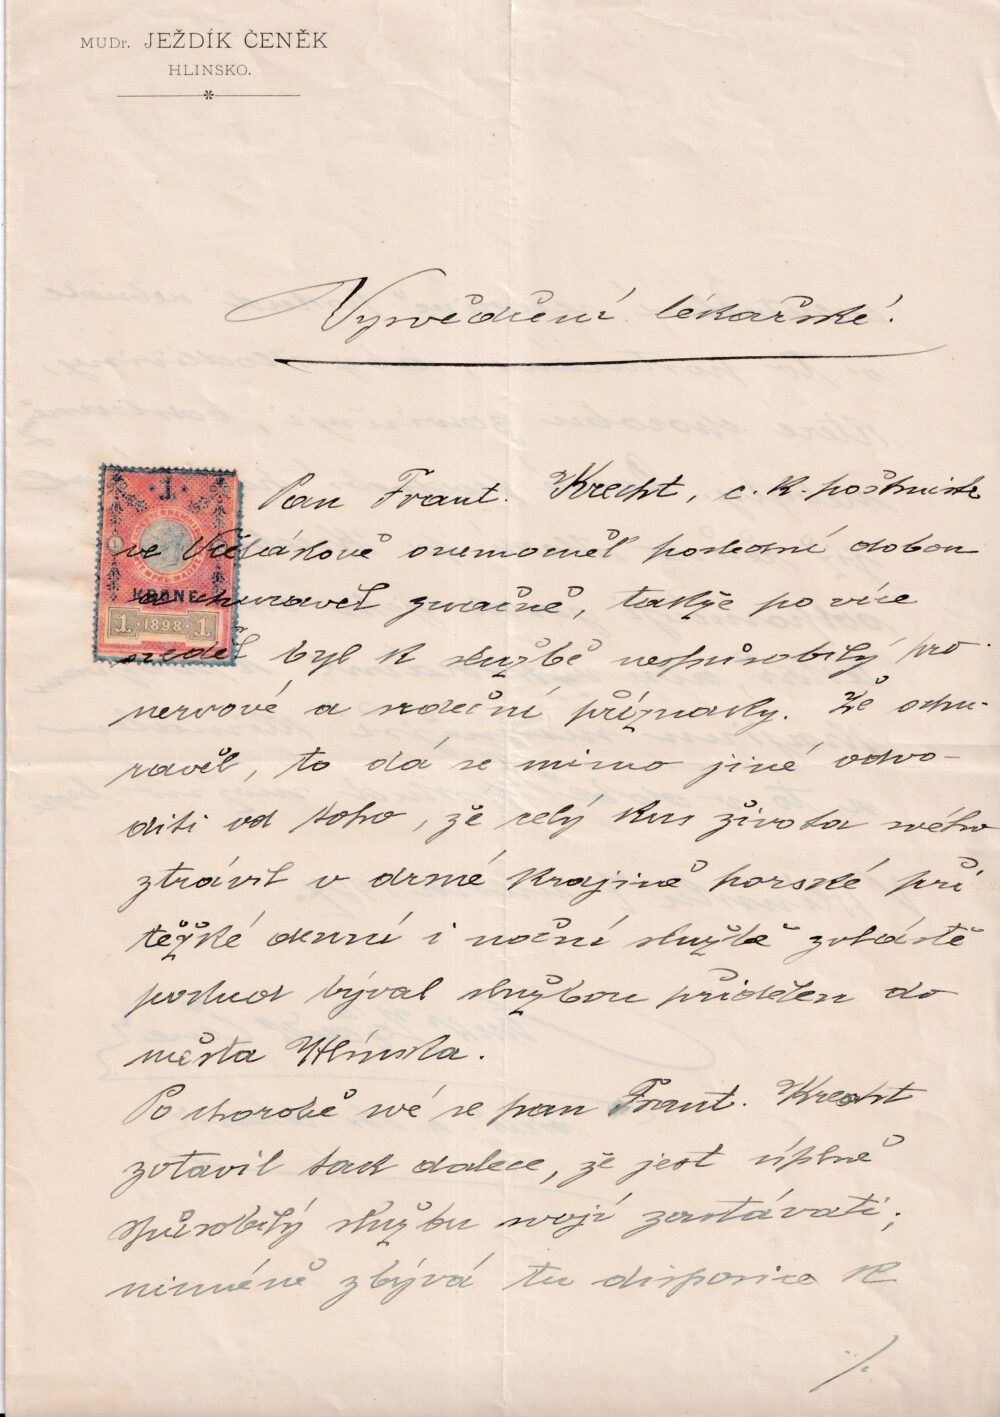 MUDr. JEŽDÍK ČENĚK
HLINSKO.
Vysvědčení lékařské.
Pan Frant. Krecht, c. k. poštmistr
ve Vítanově onemocněl poslední dobou
a churavěl značně, takže po více
neděl byl k službě nespůsobilý pro
nervové a srdeční příznaky. Že ochu-
ravěl, to dá se mimo jiné odvo-
diti od toho, že celý kus života svého
ztrávil v drsné krajině horské při
těžké denní i noční službě zvláště
pokud býval službou přidělen do
města Hlinska.
Po chorobě své se pan Frant. Krecht
zotavil tak dalece, že jest úplně
spůsobilý službu svoji zastávati;
nicméně zbývá tu disposice k
1
KRONE
1 · 1898 · 1